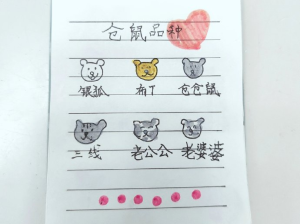 仓鼠品种
银狐 布丁 仓仓鼠
三线 老公公 老婆婆